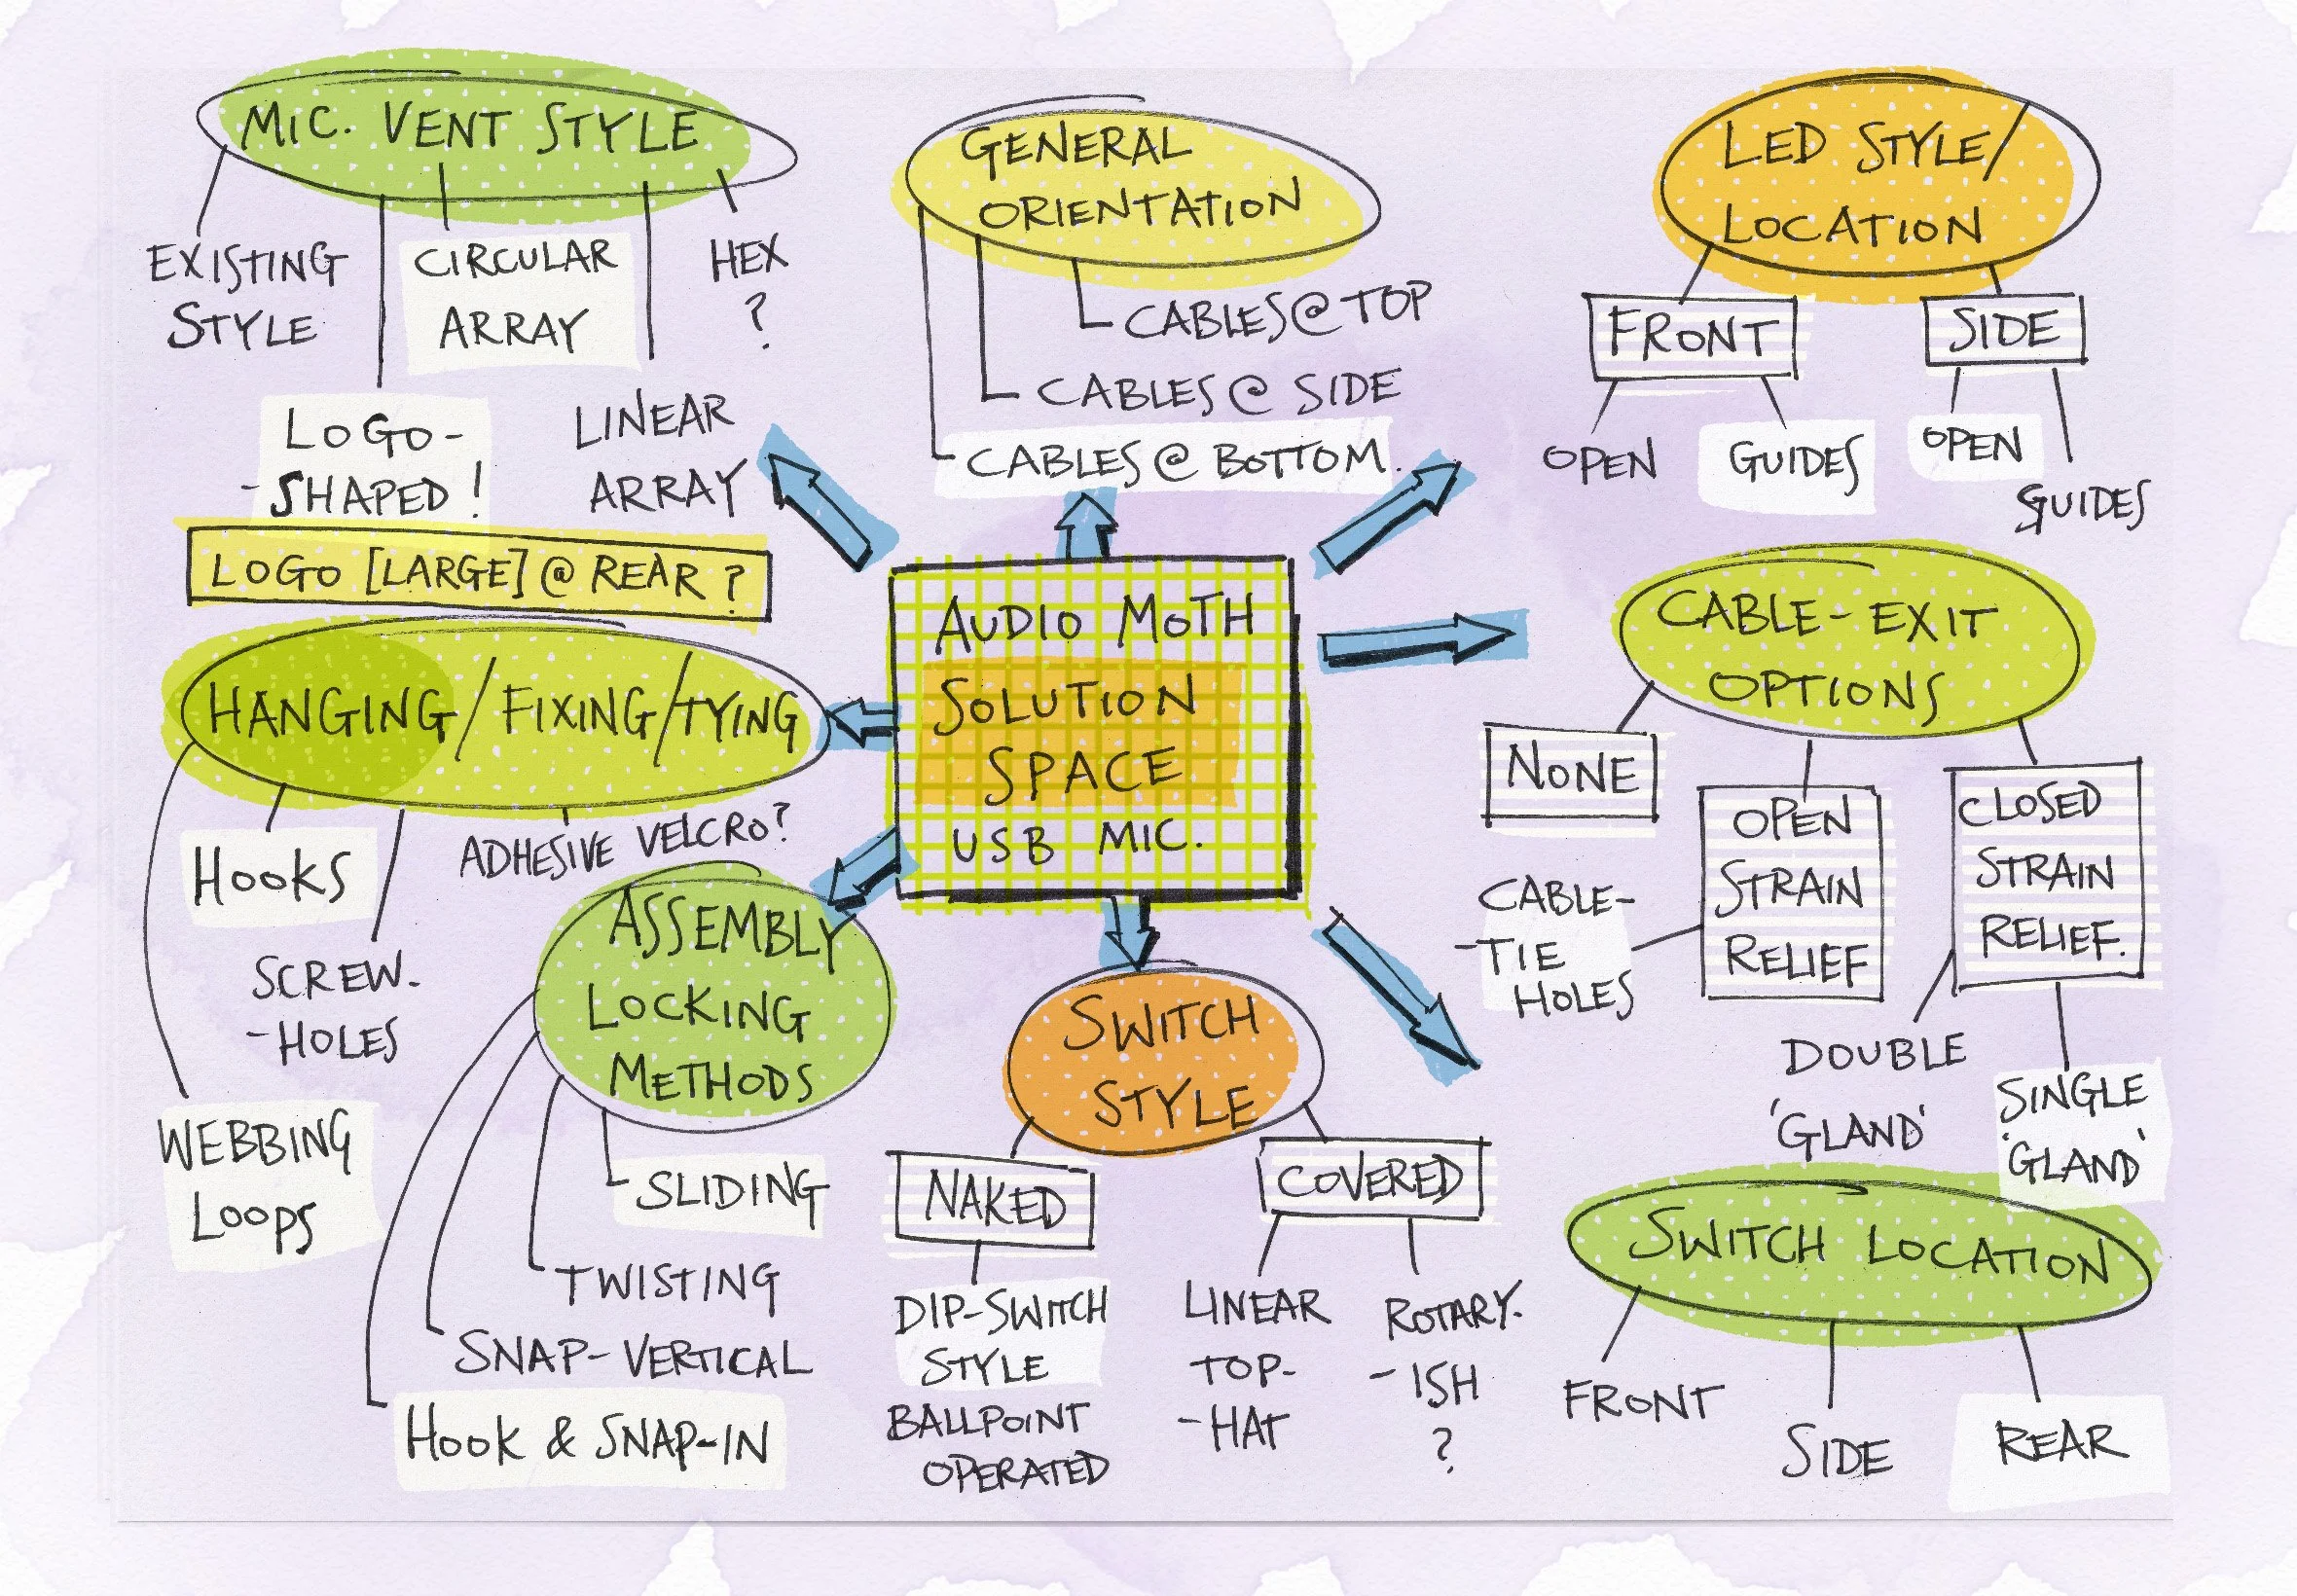 MIC. VENT STYLE
EXISTING
STYLE
LOGO-
-SHAPED!
CIRCULAR
ARRAY
LINEAR
ARRAY
HEX
?
LOGO [LARGE] @ REAR?
GENERAL
ORIENTATION
CABLES @ TOP
CABLES @ SIDE
CABLES @ BOTTOM.
LED STYLE/
LOCATION
FRONT
OPEN
GUIDES
SIDE
OPEN
GUIDES
AUDIO MOTH
SOLUTION
SPACE
USB MIC.
CABLE-EXIT
OPTIONS
NONE
OPEN
STRAIN
RELIEF
CABLE-
-TIE
HOLES
CLOSED
STRAIN
RELIEF.
DOUBLE
'GLAND'
SINGLE
'GLAND'
HANGING/FIXING/TYING
HOOKS
SCREW-
-HOLES
ADHESIVE VELCRO?
WEBBING
LOOPS
ASSEMBLY
LOCKING
METHODS
SLIDING
TWISTING
SNAP-VERTICAL
HOOK & SNAP-IN
SWITCH
STYLE
NAKED
DIP-SWITCH
STYLE
BALLPOINT
OPERATED
COVERED
LINEAR
TOP-
-HAT
ROTARY-
-ISH
?
SWITCH LOCATION
FRONT
SIDE
REAR